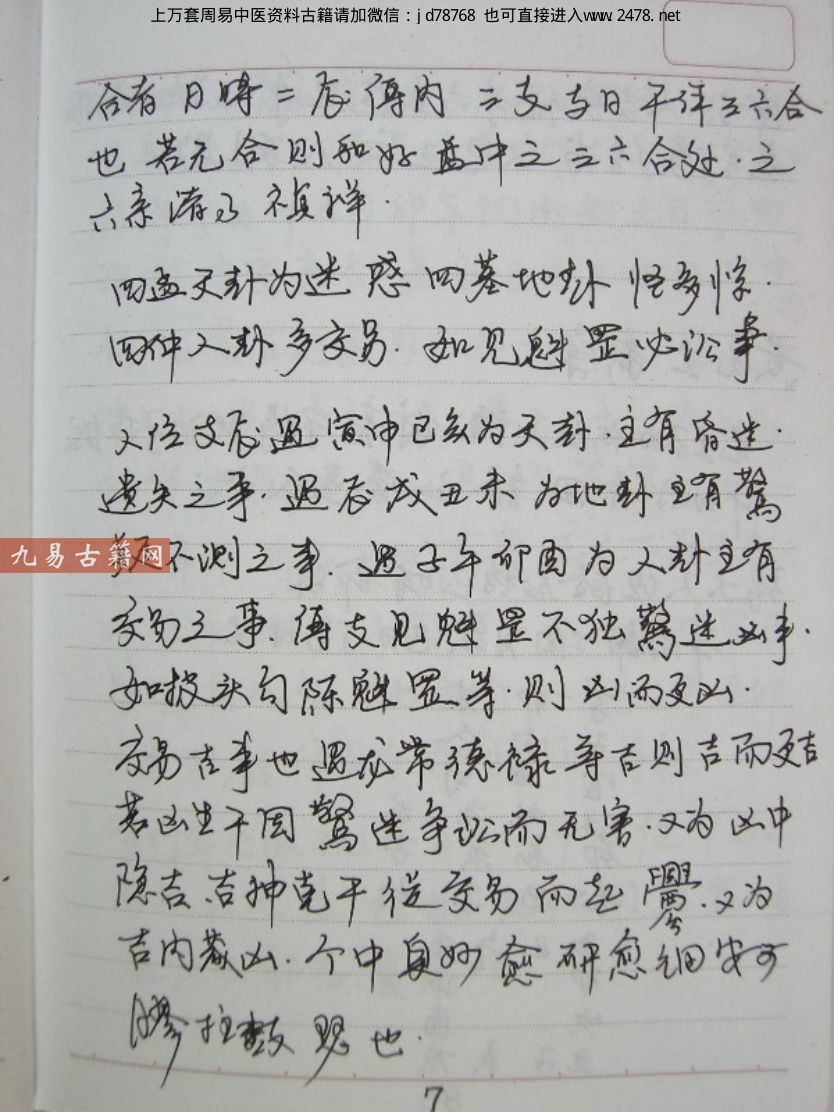 上万套周易中医资料古籍请加微信：jd78768 也可直接进入www.2478.net
合者日時二辰傳内三支与日干作三六合
也 若无合则和好 盘中之三六合处.之
六亲 禎祥.
四孟天卦为迷惑 四墓地卦怪多惊.
四仲人卦多交易. 如见魁罡必讼事.
人位支辰遇寅申巳亥为天卦.主有昏迷.
遗失之事.遇辰戌丑未为地卦主有驚
疑不测之事.遇子午卯酉为人卦主有
交易之事.傳支见魁罡不独驚迷凶事.
如披头勾陈魁罡等.则凶而更凶.
交易吉事也遇龙常德禄等吉则吉而更吉
若凶生干因驚迷争讼而无害.又为凶中
隐吉.吉神克干從交易而起釁.又为
吉内藏凶.个中奥妙愈研愈细安可
膠柱鼓瑟也.
九易古籍网
7